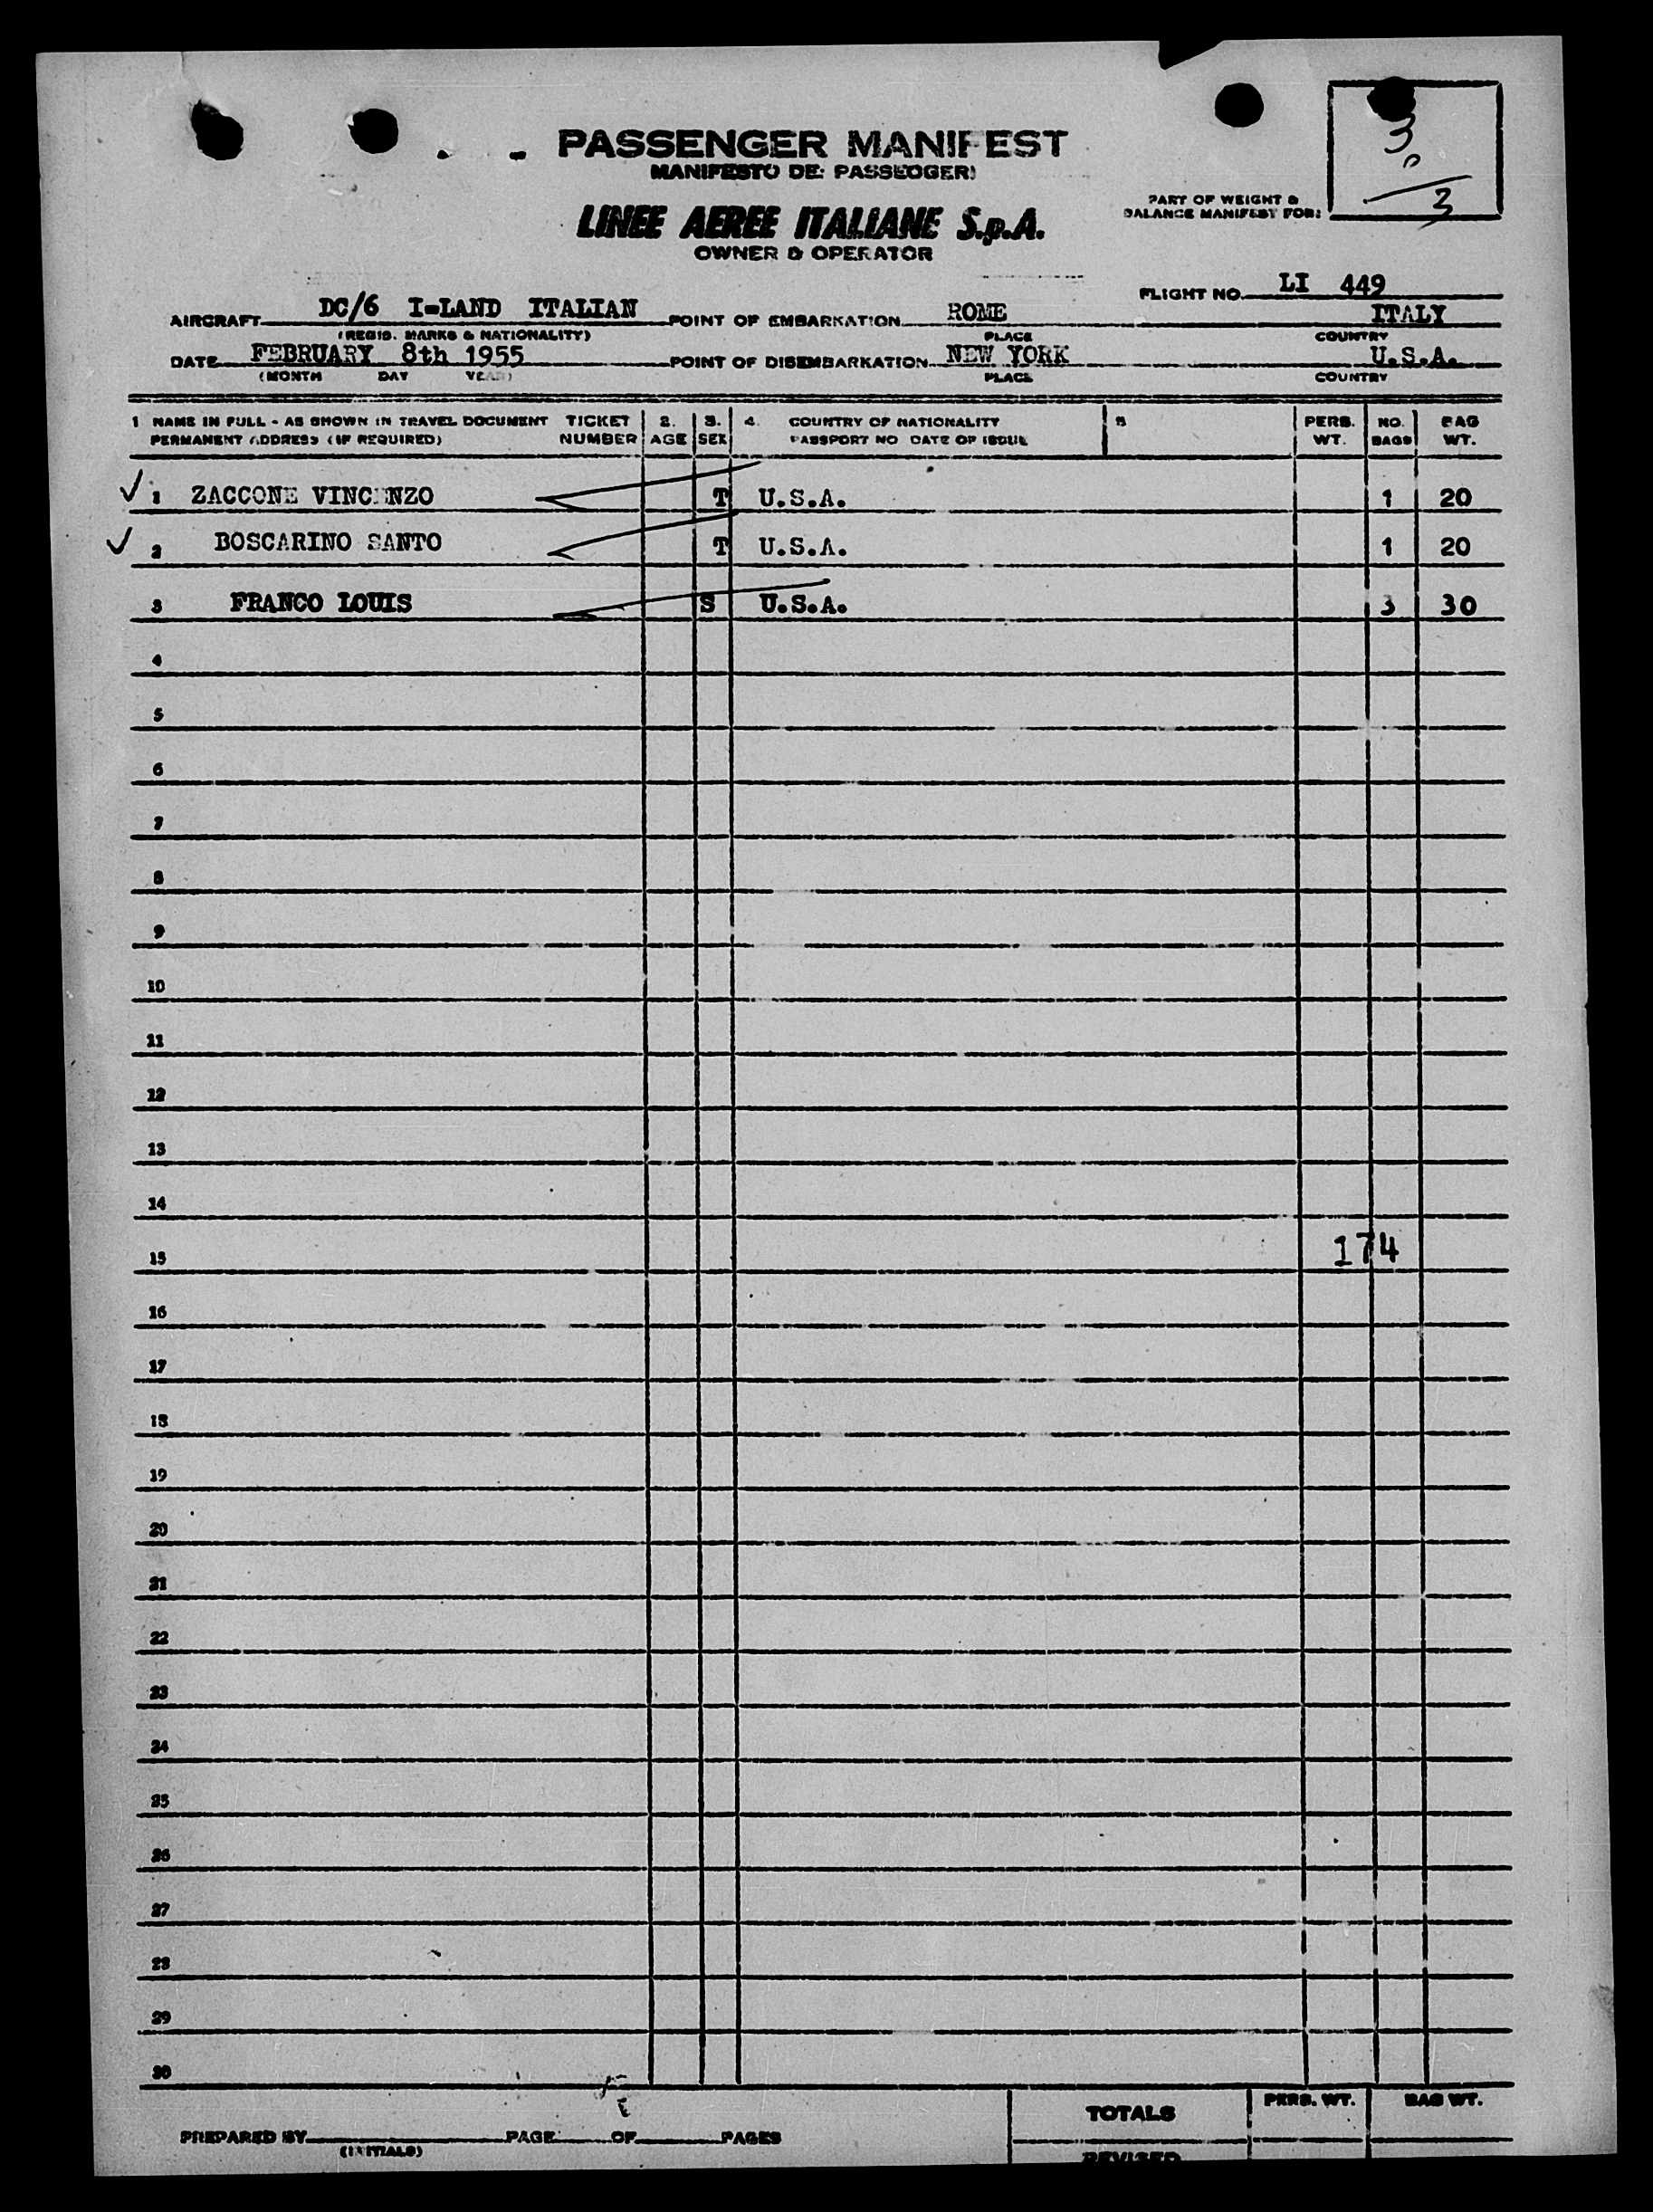 PASSENGER MANIFEST
MANIFESTO DEI PASSEGGERI
LINEE AEREE ITALIANE S.p.A.
OWNER & OPERATOR
3
0
3
PART OF WEIGHT &
BALANCE MANIFEST FOR:
FLIGHT NO. LI 449
AIRCRAFT DC/6 I-LAND ITALIAN POINT OF EMBARKATION ROME ITALY
(REGIS. MARKS & NATIONALITY) PLACE COUNTRY
DATE FEBRUARY 8th 1955 POINT OF DISEMBARKATION NEW YORK U.S.A.
(MONTH DAY YEAR) PLACE COUNTRY
1 NAME IN FULL - AS SHOWN IN TRAVEL DOCUMENT TICKET 2. 3. 4. COUNTRY OF NATIONALITY 5 PERS. NO. BAG
PERMANENT ADDRESS (IF REQUIRED) NUMBER AGE SEX PASSPORT NO DATE OF ISSUE WT. BAGS WT.
1 ZACCONE VINCENZO T U.S.A. 1 20
2 BOSCARINO SANTO T U.S.A. 1 20
3 FRANCO LOUIS S U.S.A. 3 30
4
5
6
7
8
9
10
11
12
13
14
15 174
16
17
18
19
20
21
22
23
24
25
26
27
28
29
30
TOTALS PERS. WT. BAG WT.
PREPARED BY PAGE OF PAGES
(INITIALS)
REVISED